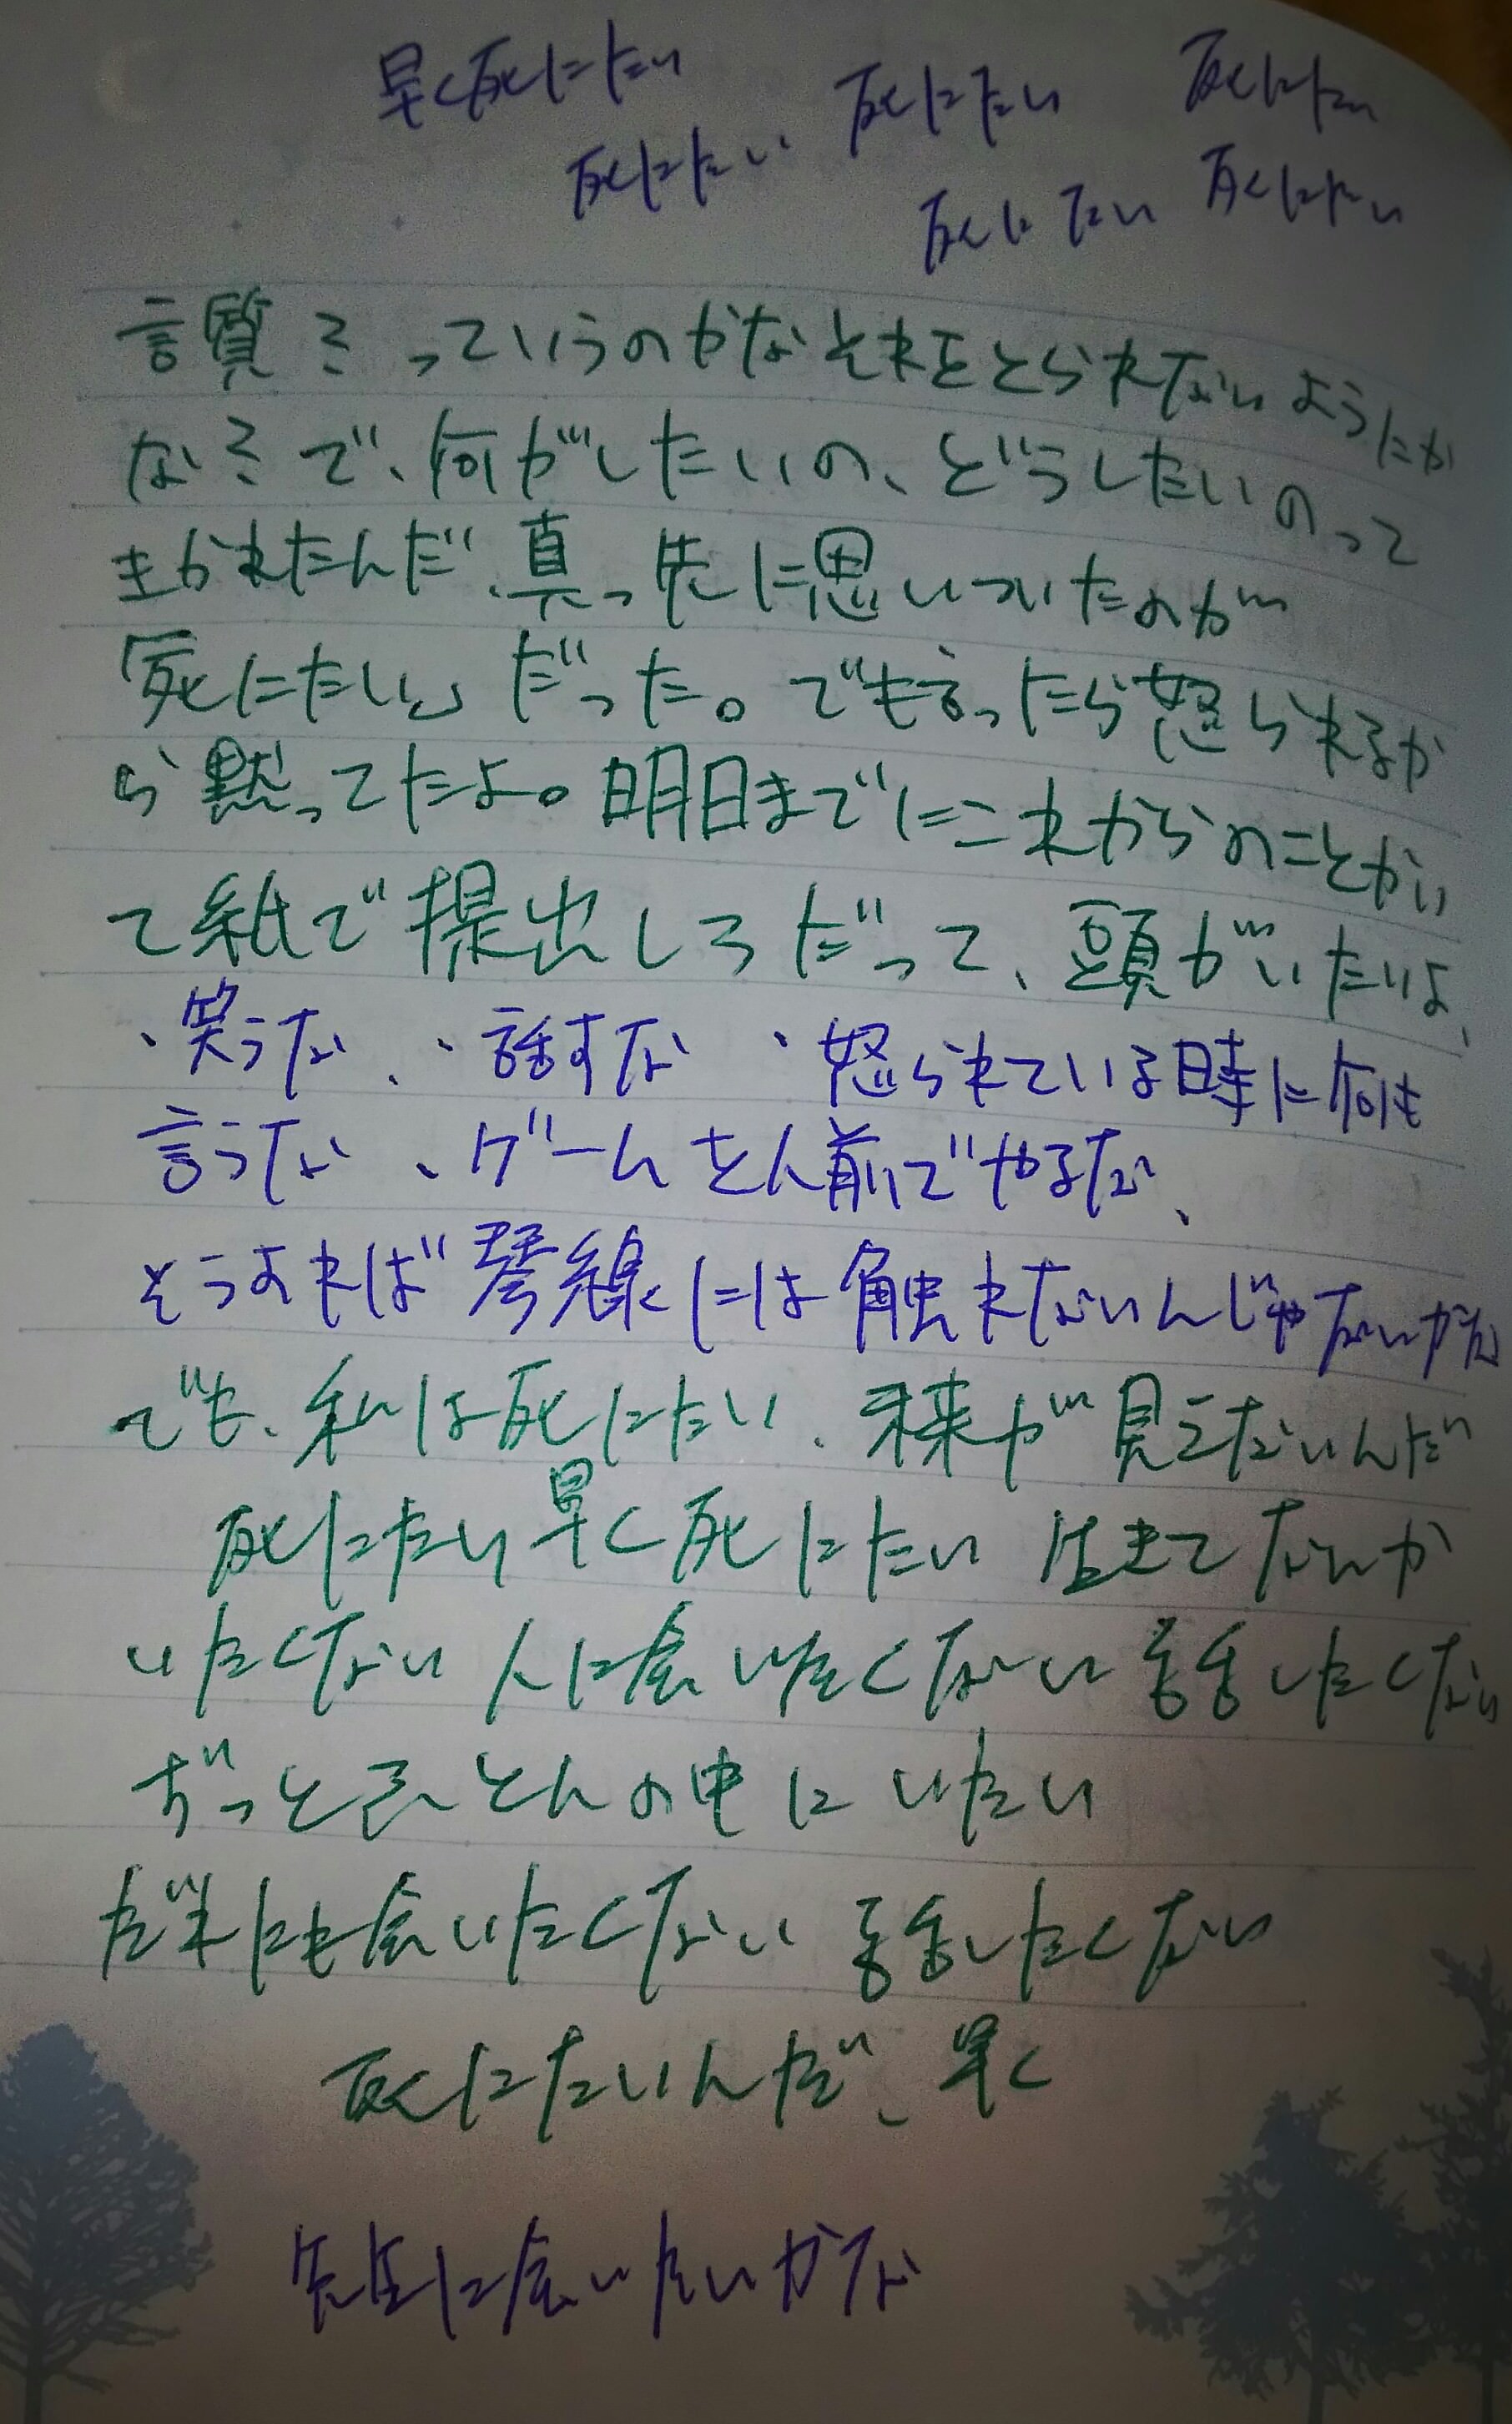 早く死にたい 死にたい 死にたい
死にたい 死にたい 死にたい
言質?っていうのかなそれをとられないようにか
な?で、何がしたいの、どうしたいのって
きかれたんだ、真っ先に思いついたのが
「死にたい」だった。でも言ったら怒られるか
ら黙ってたよ。明日までにこれからのことかい
て紙で提出しろだって、頭がいたいよ、
、笑うな、、話すな 、怒られている時に何も
言うな、ゲームを人前でやるな、
そうすれば琴線には触れないんじゃないかな
でも、私は死にたい、未来が見えないんだ
死にたい早く死にたい 生きてなんか
いたくない 人に会いたくない 会いたくない
ずっとふとんの中にいたい
だれにも会いたくない 会いたくない
死にたいんだ、早く
先生に会いたいかな